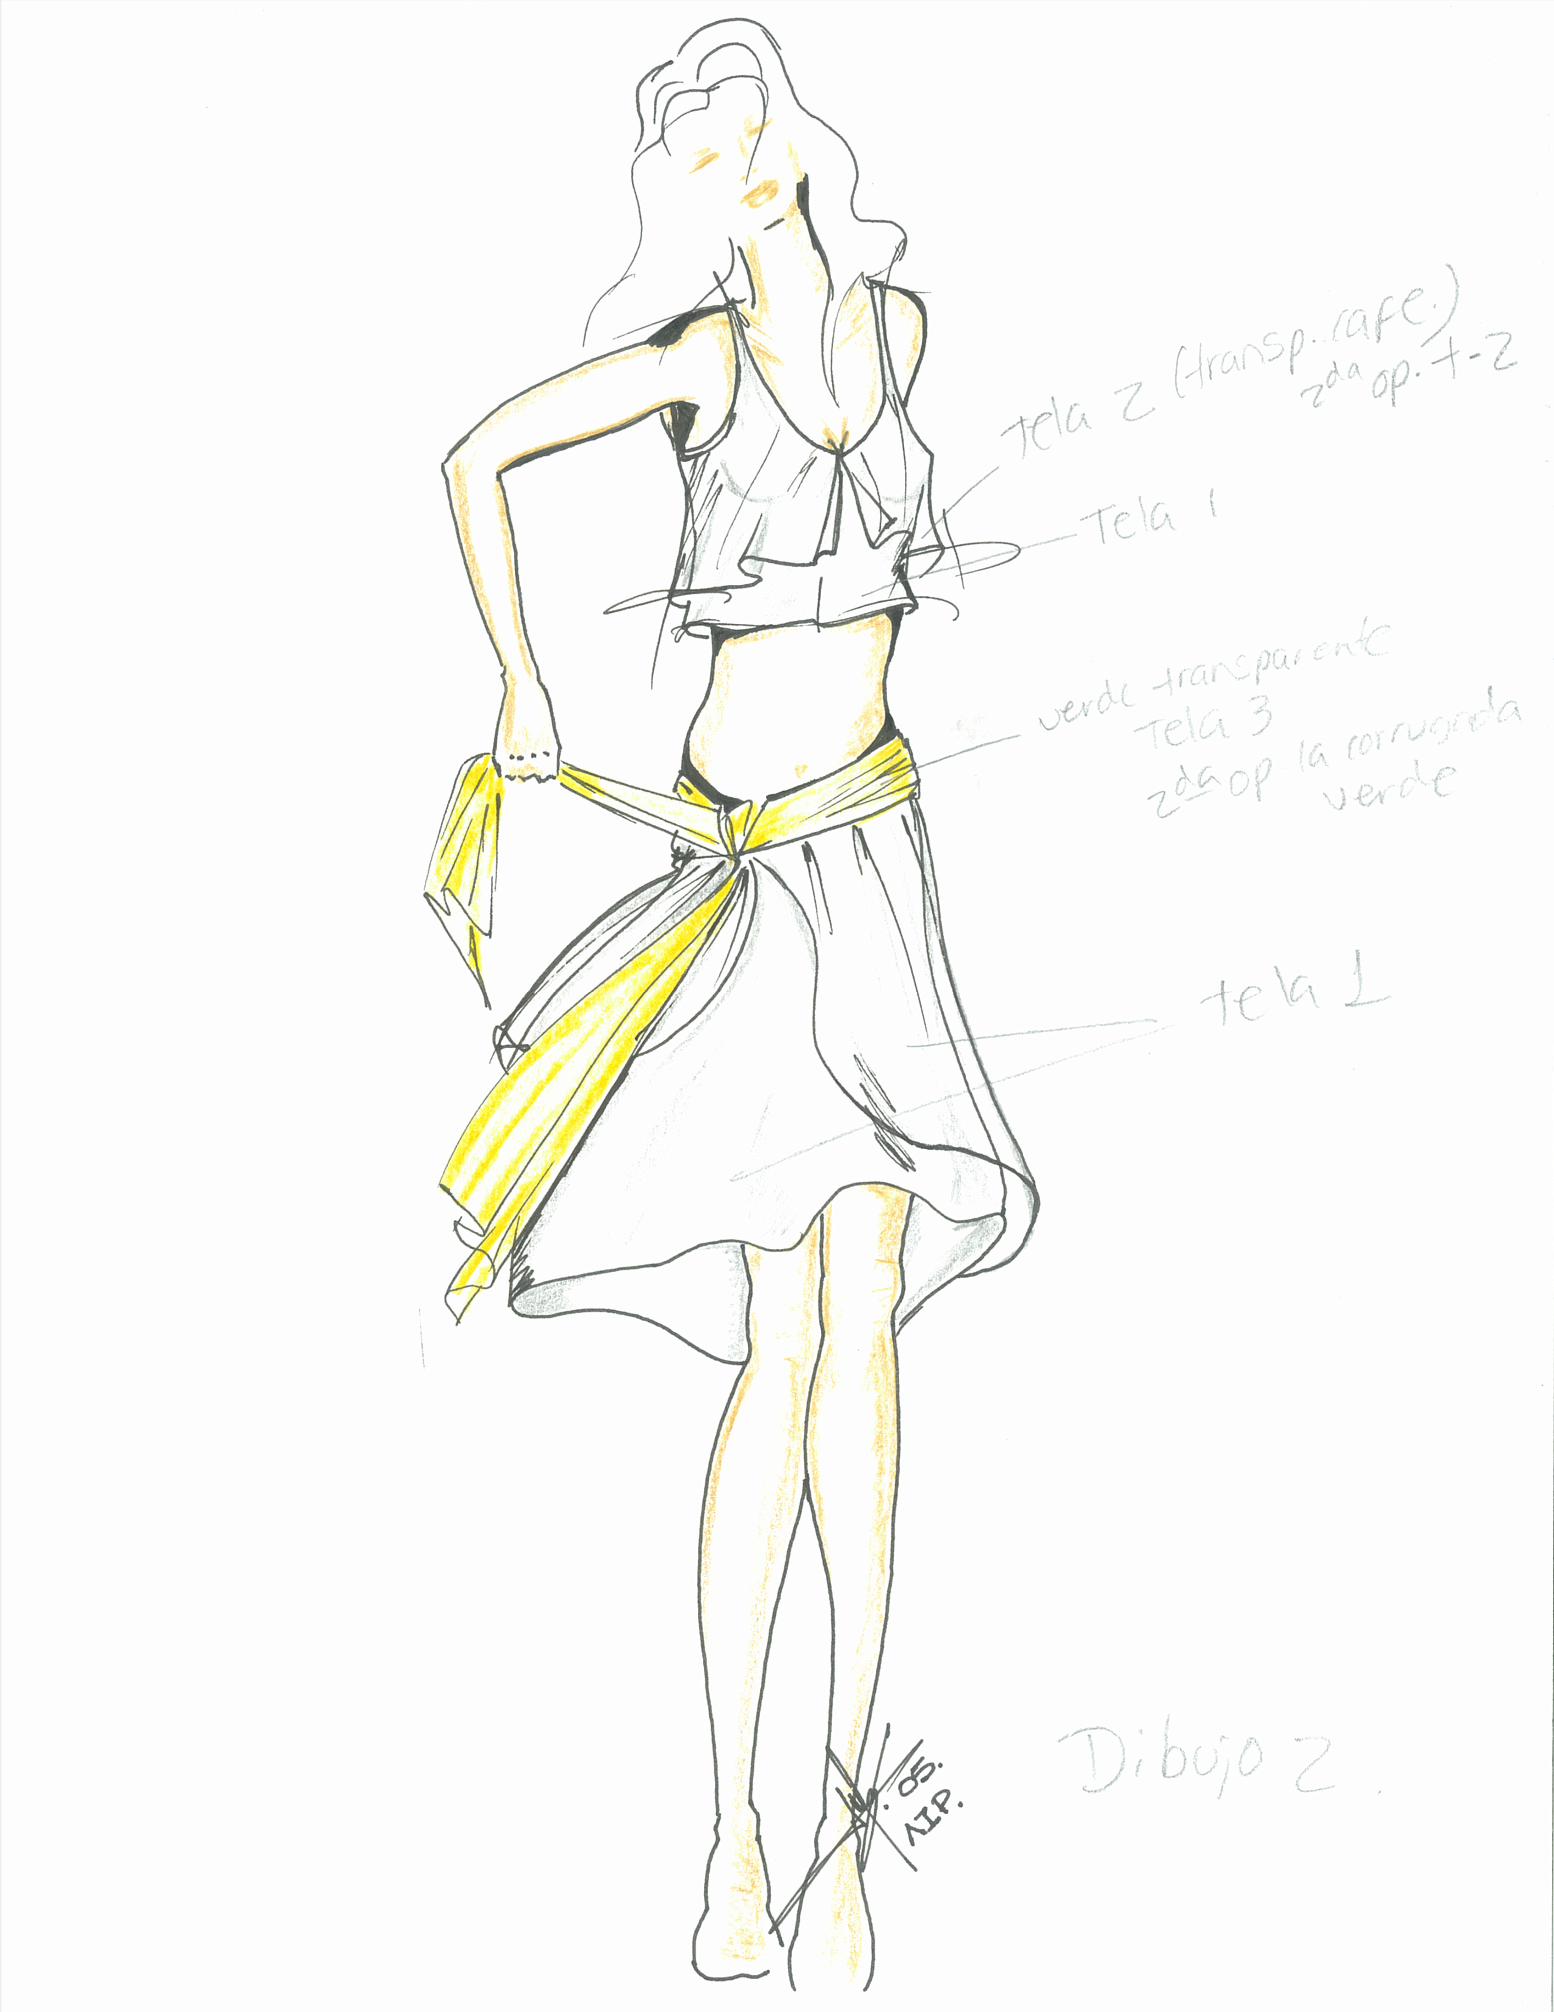 Tela 2 (transp. cafe.)
2da op. t-2
Tela 1
verde transparente
Tela 3
2da op la corrugada
verde
tela 1
Dibujo 2
.05.
VIP.